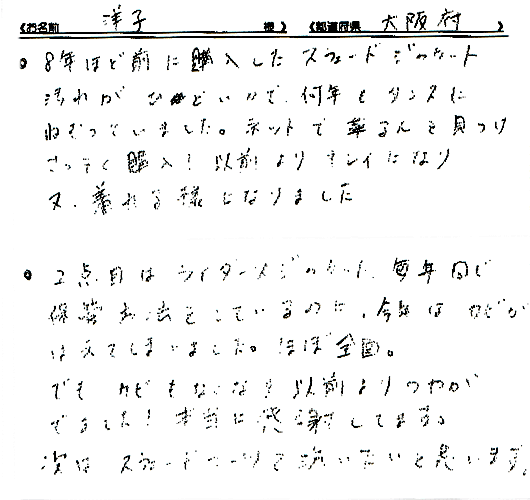 《お名前 洋子 様》 《都道府県 大阪府 》
・8年ほど前に購入したスウェードジャケット
汚れがひどいので、何年もタンスに
ねむっていました。ネットで革るんを見つけ
さっそく購入！以前よりキレイになり
又、着れる様になりました
・2点目はライダースジャケット、毎年同じ
保管方法をしているのに、今年はカビが
はえてしまいました。ほぼ全面。
でもカビもなくなり以前よりつやが
でました！本当に感謝してます。
次はスウェードブーツで洗いたいと思います。